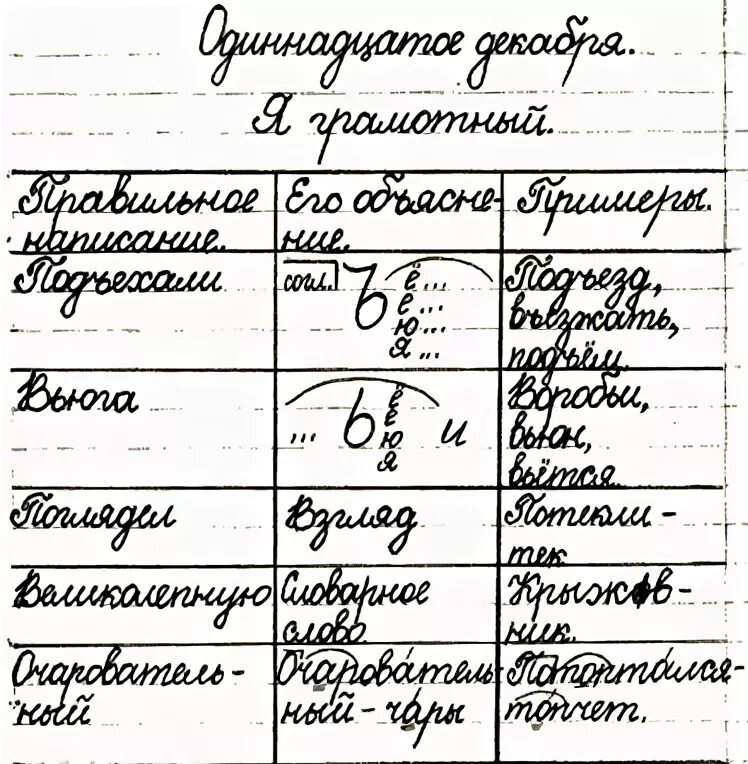 Одиннадцатое декабря.
Я грамотный.
Правильное
написание.
Его объясне-
ние.
Примеры.
Подъехали
согл. Ъ ё...
е...
ю...
я...
Подъезд,
въезжать,
подъём.
Вьюга
... ь ё
е
ю и
я
Воробьи,
вьюн,
вьётся.
Поглядел
Взгляд
Потекли -
тек
Великолепную
Словарное
слово.
Крыжов-
ник.
Очарователь-
ный
Очарова́тель-
ный - ча́ры
Потопта́лся-
то́пчет.